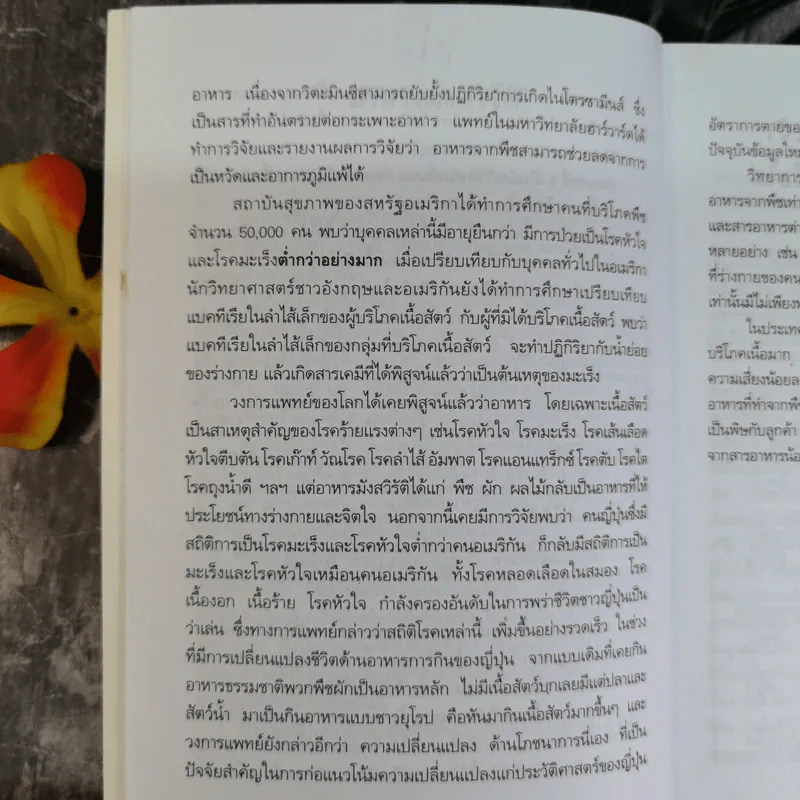 อาหาร เนื่องจากวิตะมินซีสามารถยับยั้งปฏิกิริยาการเกิดไนโตรซามีนส์ ซึ่ง
เป็นสารที่ทำอันตรายต่อกระเพาะอาหาร แพทย์ในมหาวิทยาลัยฮาร์วาร์ดได้
ทำการวิจัยและรายงานผลการวิจัยว่า อาหารจากพืชสามารถช่วยลดจากการ
เป็นหวัดและอาการภูมิแพ้ได้
สถาบันสุขภาพของสหรัฐอเมริกาได้ทำการศึกษาคนที่บริโภคพืช
จำนวน 50,000 คน พบว่าบุคคลเหล่านี้มีอายุยืนกว่า มีการป่วยเป็นโรคหัวใจ
และโรคมะเร็งต่ำกว่าอย่างมาก เมื่อเปรียบเทียบกับบุคคลทั่วไปในอเมริกา
นักวิทยาศาสตร์ชาวอังกฤษและอเมริกันยังได้ทำการศึกษาเปรียบเทียบ
แบคทีเรียในลำไส้เล็กของผู้บริโภคเนื้อสัตว์ กับผู้ที่มิได้บริโภคเนื้อสัตว์ พบว่า
แบคทีเรียในลำไส้เล็กของกลุ่มที่บริโภคเนื้อสัตว์ จะทำปฏิกิริยากับน้ำย่อย
ของร่างกาย แล้วเกิดสารเคมีที่ได้พิสูจน์แล้วว่าเป็นต้นเหตุของมะเร็ง
วงการแพทย์ของโลกได้เคยพิสูจน์แล้วว่าอาหาร โดยเฉพาะเนื้อสัตว์
เป็นสาเหตุสำคัญของโรคร้ายแรงต่างๆ เช่นโรคหัวใจ โรคมะเร็ง โรคเส้นเลือด
หัวใจตีบตัน โรคเก๊าท์ วัณโรค โรคลำไส้ อัมพาต โรคแอนแทร็กซ์ โรคตับ โรคไต
โรคถุงน้ำดี ฯลฯ แต่อาหารมังสวิรัติได้แก่ พืช ผัก ผลไม้กลับเป็นอาหารที่ให้
ประโยชน์ทางร่างกายและจิตใจ นอกจากนี้เคยมีการวิจัยพบว่า คนญี่ปุ่นซึ่งมี
สถิติการเป็นโรคมะเร็งและโรคหัวใจต่ำกว่าคนอเมริกัน ก็กลับมีสถิติการเป็น
มะเร็งและโรคหัวใจเหมือนคนอเมริกัน ทั้งโรคหลอดเลือดในสมอง โรค
เนื้องอก เนื้อร้าย โรคหัวใจ กำลังครองอันดับในการพร่าชีวิตชาวญี่ปุ่นเป็น
ว่าเล่น ซึ่งทางการแพทย์กล่าวว่าสถิติโรคเหล่านี้ เพิ่มขึ้นอย่างรวดเร็ว ในช่วง
ที่มีการเปลี่ยนแปลงชีวิตด้านอาหารการกินของญี่ปุ่น จากแบบเดิมที่เคยกิน
อาหารธรรมชาติพวกพืชผักเป็นอาหารหลัก ไม่มีเนื้อสัตว์บุกเลยมีแต่ปลาและ
สัตว์น้ำ มาเป็นกินอาหารแบบชาวยุโรป คือหันมากินเนื้อสัตว์มากขึ้นๆ และ
วงการแพทย์ยังกล่าวอีกว่า ความเปลี่ยนแปลง ด้านโภชนาการนี่เอง ที่เป็น
ปัจจัยสำคัญในการก่อแนวโน้มความเปลี่ยนแปลงแก่ประวัติศาสตร์ของญี่ปุ่น
อัตราการตายของ
ปัจจุบันข้อมูลใหม
วิทยาการ
อาหารจากพืชเท่า
และสารอาหารต่า
หลายอย่าง เช่น
ที่ร่างกายของคน
เท่านั้นมีไม่เพียงพ
ในประเทศ
บริโภคเนื้อมาก
ความเสี่ยงน้อยล
อาหารที่ทำจากพืช
เป็นพิษกับลูกค้า
จากสารอาหารน้อ